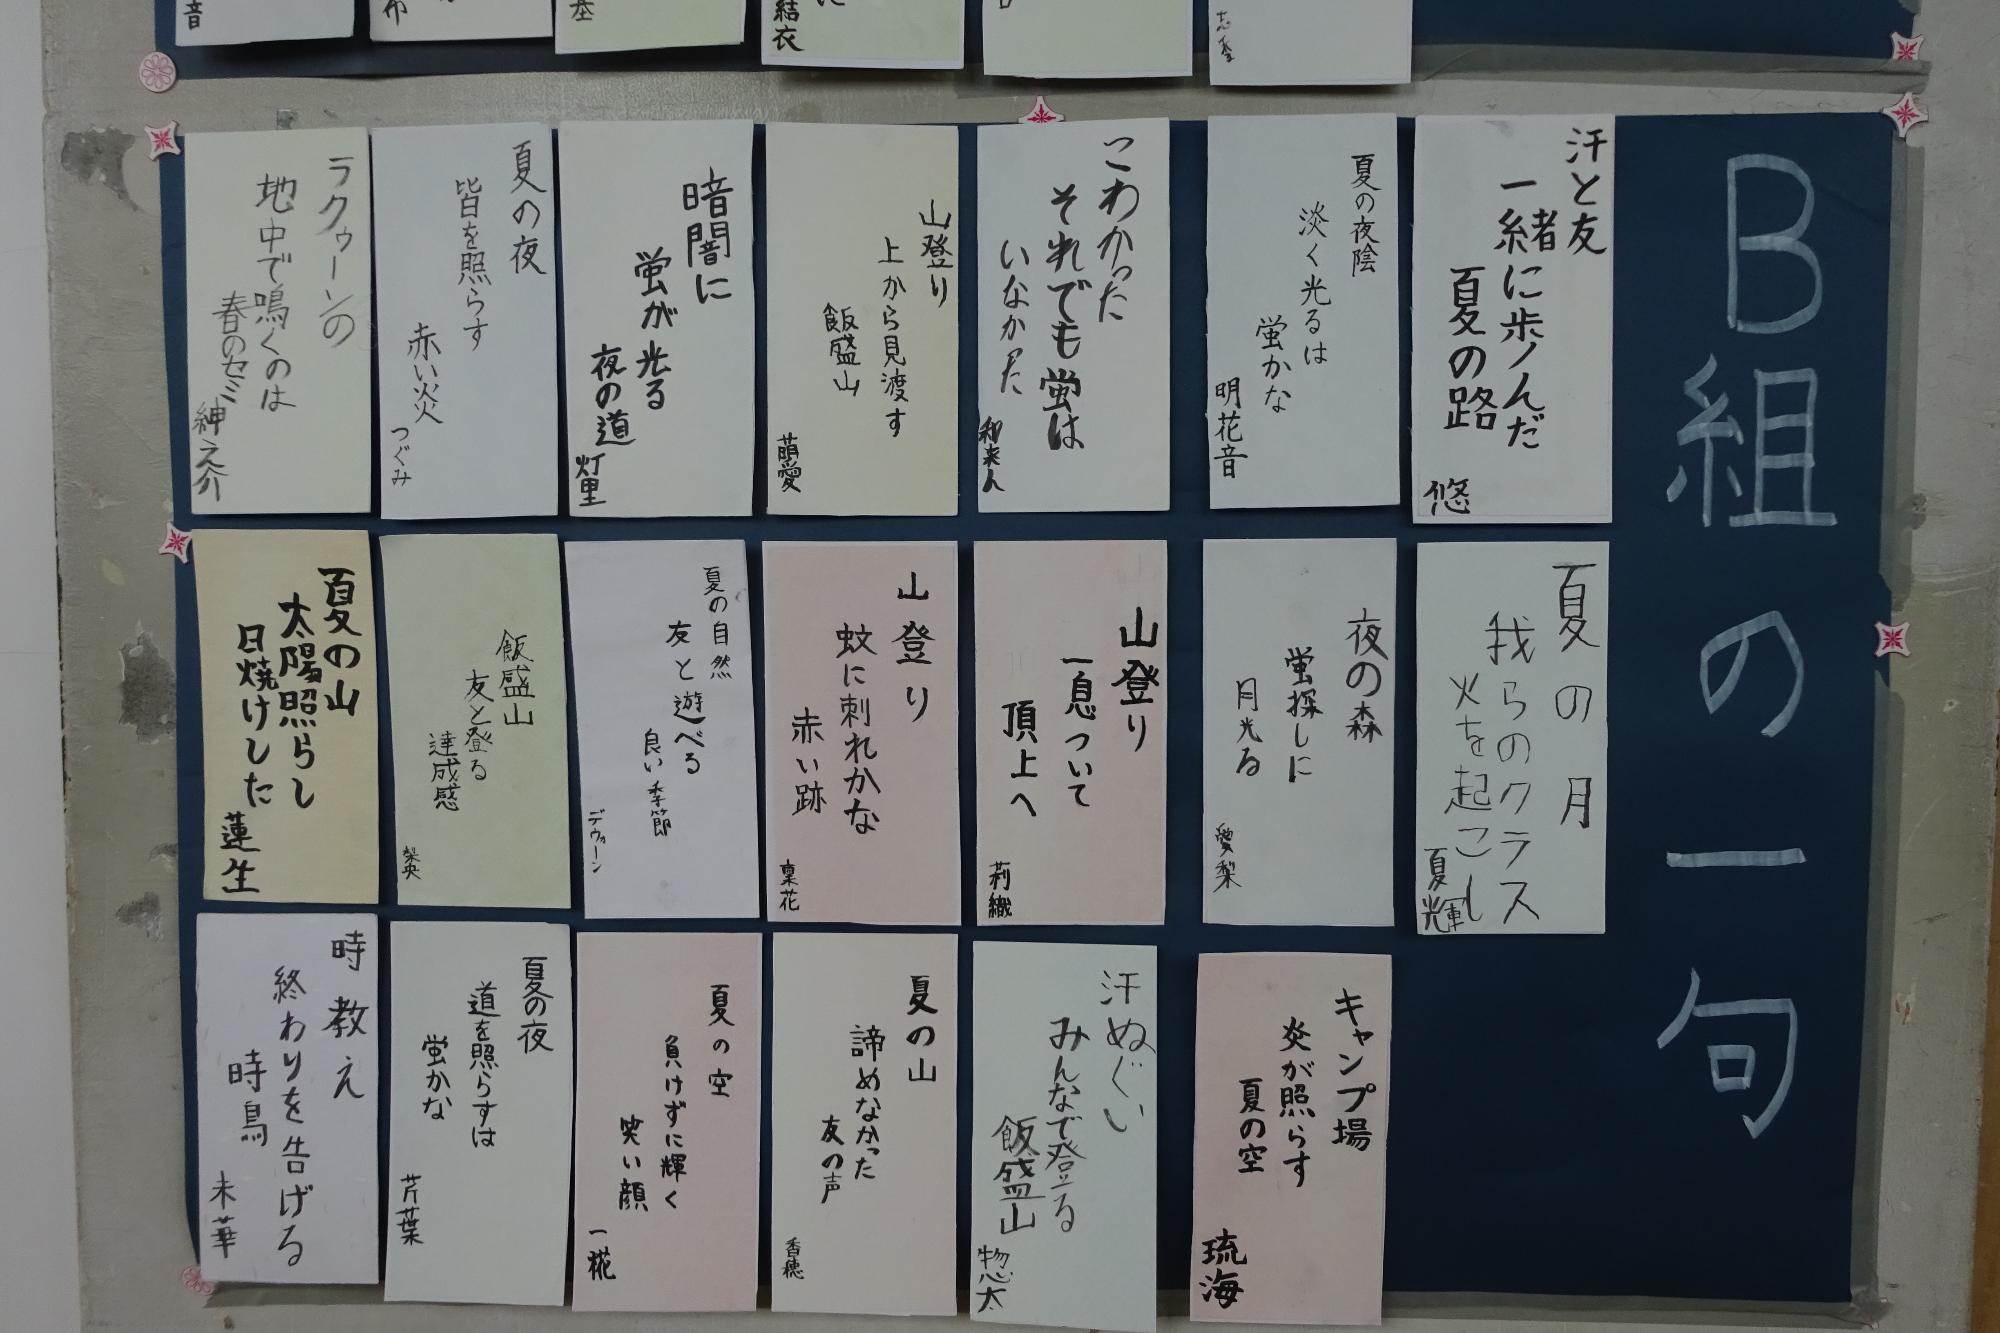 B組の一句
汗と友
一緒に歩んだ
夏の路
悠
夏の夜陰
淡く光るは
蛍かな
明花音
こわかった
それでも蛍は
いなかった
和来人
山登り
上から見渡す
飯盛山
萌愛
暗闇に
蛍が光る
夜の道
灯里
夏の夜
皆を照らす
赤い炎
つぐみ
ラクゥーンの
地中で鳴くのは
春のセミ
紳之介
夏の月
我らのクラス
火を起こし
夏輝
夜の森
蛍探しに
月光る
愛梨
山登り
一息ついて
頂上へ
莉織
山登り
蚊に刺れかな
赤い跡
稟花
夏の自然
友と遊べる
良い季節
デヴォーン
飯盛山
友と登る
達成感
梨央
夏の山
太陽照らし
日焼けした
蓮生
キャンプ場
炎が照らす
夏の空
琉海
汗ぬぐい
みんなで登る
飯盛山
惣太
夏の山
諦めなかった
友の声
香穂
夏の空
負けずに輝く
笑い顔
一椛
夏の夜
道を照らすは
蛍かな
芹葉
時教え
終わりを告げる
時鳥
未華
結衣
音